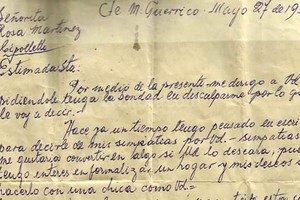 Señorita Cte M. Guerrico - Mayo 27 de 19
Rosa Martinez
Cipolletti
Estimada Sta.
Por medio de la presente me dirigo a Vd
pidiendole tenga la bondad en desculparme por lo que
le voy a decir.
Hace ya un tiempo tengo pensado en escri
para decirle de mis simpatias por Vd - simpatias
me gustaria convertir en algo si Vd lo deseara, pue
tengo interes en formalizar un hogar y mis deseos
hacerlo con una chica como Vd =